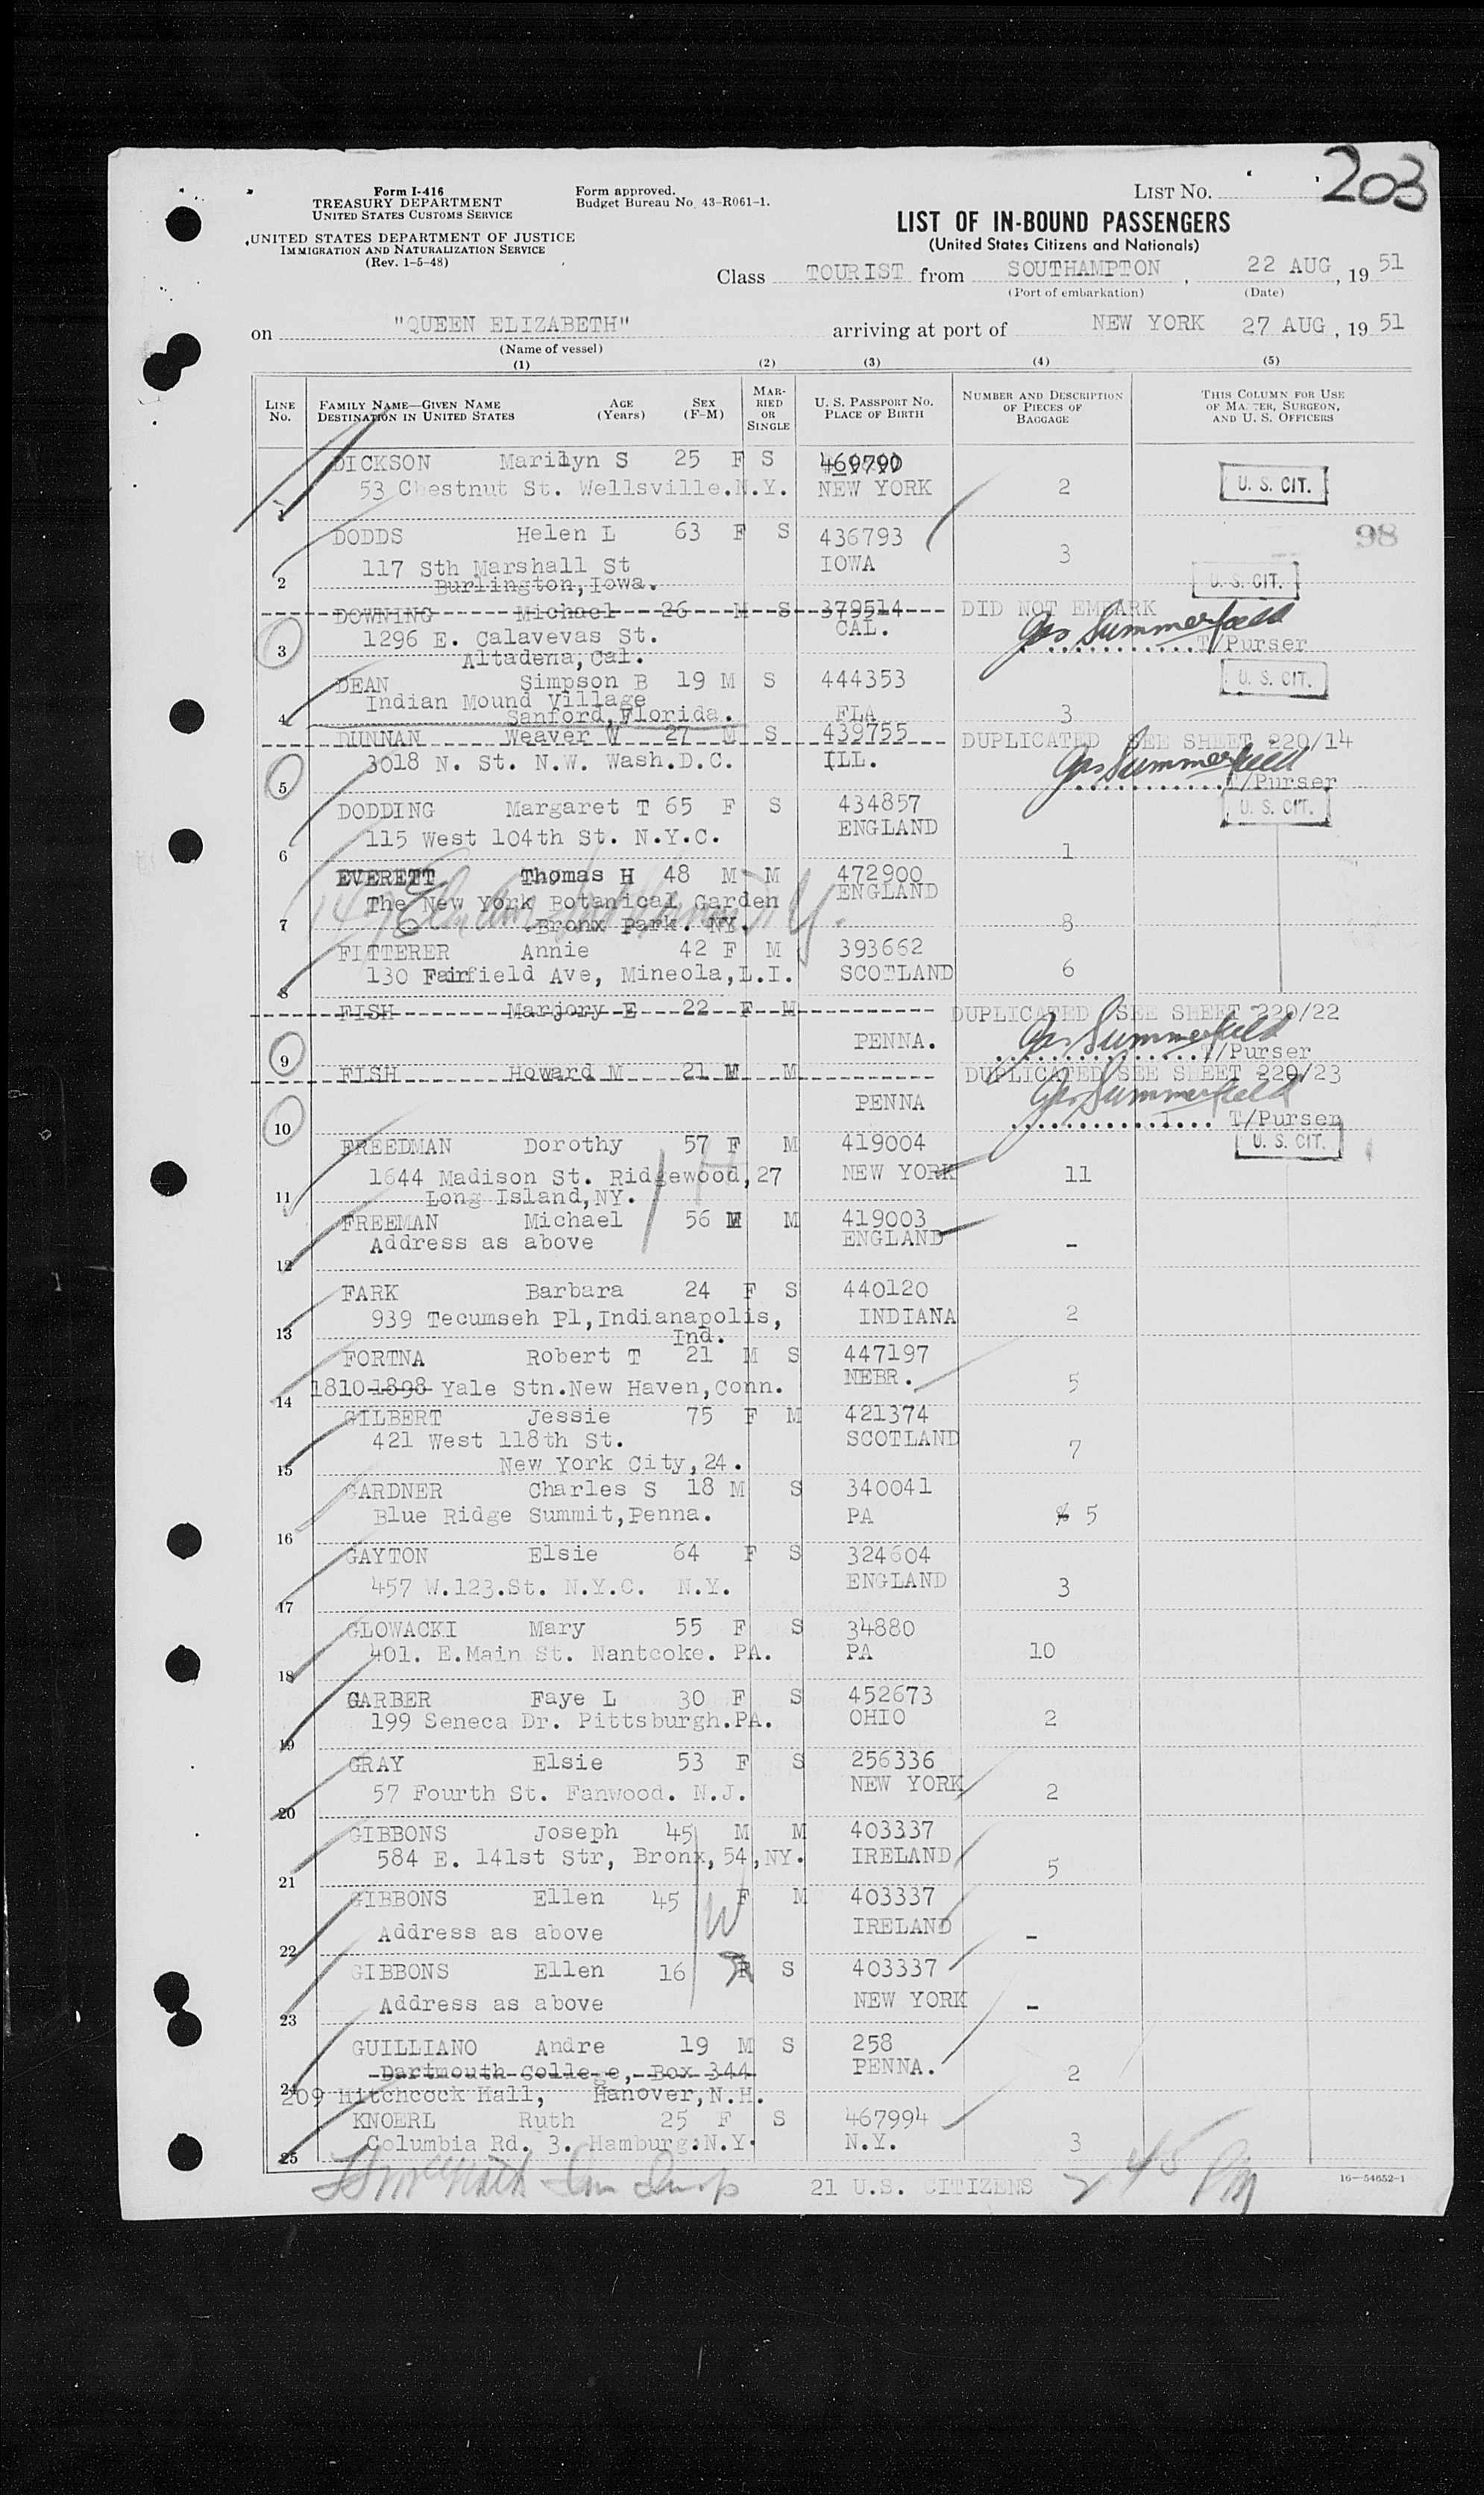 203
Form I-416
TREASURY DEPARTMENT
UNITED STATES CUSTOMS SERVICE
UNITED STATES DEPARTMENT OF JUSTICE
IMMIGRATION AND NATURALIZATION SERVICE
(Rev. 1-5-48)
Form approved.
Budget Bureau No. 43-R061-1.
LIST NO.
LIST OF IN-BOUND PASSENGERS
(United States Citizens and Nationals)
Class TOURIST from SOUTHAMPTON, 22 AUG, 19 51
(Port of embarkation) (Date)
on "QUEEN ELIZABETH" arriving at port of NEW YORK 27 AUG, 19 51
(Name of vessel)
(1) (2) (3) (4) (5)
LINE No. FAMILY NAME—GIVEN NAME DESTINATION IN UNITED STATES AGE (Years) SEX (F-M) MARRIED OR SINGLE U. S. PASSPORT NO. PLACE OF BIRTH NUMBER AND DESCRIPTION OF PIECES OF BAGGAGE THIS COLUMN FOR USE OF MASTER, SURGEON, AND U. S. OFFICERS
DICKSON Marilyn S 25 F S
53 Chestnut St. Wellsville.N.Y. NEW YORK 2 U. S. CIT.
1
DODDS Helen L 63 F S 436793 98
117 Sth Marshall St IOWA 3
2 Burlington, Iowa. U. S. CIT.
DOWNING Michael 26 M S 379514 DID NOT EMBARK
1296 E. Calavevas St. CAL. Geo Summerfield
3 Altadena, Cal. T/Purser
DEAN Simpson B 19 M S 444353 U. S. CIT.
Indian Mound Village
4 Sanford, Florida. FLA 3
DUNNAN Weaver W 27 M S 439755 DUPLICATED SEE SHEET 220/14
3018 N. St. N.W. Wash.D.C. ILL. Geo Summerfield
5 T/Purser
DODDING Margaret T 65 F S 434857 U. S. CIT.
115 West 104th St. N.Y.C. ENGLAND
6 1
EVERETT Thomas H 48 M M 472900
The New York Botanical Garden ENGLAND
7 Bronx Park. NY. 8
FITTERER Annie 42 F M 393662
130 Fairfield Ave, Mineola,L.I. SCOTLAND 6
8
FISH Marjory E 22 F M DUPLICATED SEE SHEET 220/22
PENNA. Geo Summerfield
9 T/Purser
FISH Howard M 21 M M DUPLICATED SEE SHEET 220/23
PENNA Geo Summerfield
10 T/Purser
FREEDMAN Dorothy 57 F M 419004 U. S. CIT.
1644 Madison St. Ridgewood,27 NEW YORK 11
11 Long Island,NY.
FREEMAN Michael 56 M M 419003
Address as above ENGLAND -
12
FARK Barbara 24 F S 440120
939 Tecumseh Pl,Indianapolis, INDIANA 2
13 Ind.
FORTNA Robert T 21 M S 447197
1810 1898 Yale Stn.New Haven,Conn. NEBR. 5
14
GILBERT Jessie 75 F M 421374
421 West 118th St. SCOTLAND 7
15 New York City,24.
GARDNER Charles S 18 M S 340041
Blue Ridge Summit,Penna. PA 5
16
GAYTON Elsie 64 F S 324604
457 W.123.St. N.Y.C. N.Y. ENGLAND 3
17
GLOWACKI Mary 55 F S 34880
401. E.Main St. Nantcoke. PA. PA 10
18
GARBER Faye L 30 F S 452673
199 Seneca Dr. Pittsburgh.PA. OHIO 2
19
GRAY Elsie 53 F S 256336
57 Fourth St. Fanwood. N.J. NEW YORK 2
20
GIBBONS Joseph 45 M M 403337
584 E. 141st Str, Bronx,54,NY. IRELAND 5
21
GIBBONS Ellen 45 F M 403337
Address as above IRELAND -
22
GIBBONS Ellen 16 S 403337
Address as above NEW YORK -
23
GUILLIANO Andre 19 M S 258
Dartmouth College, Box 344 PENNA. 2
24
209 Hitchcock Hall, Hanover,N.H.
KNOERL Ruth 25 F S 467994
Columbia Rd. 3. Hamburg:N.Y. N.Y. 3
25
21 U.S. CITIZENS 2 45 PM
16—54652-1